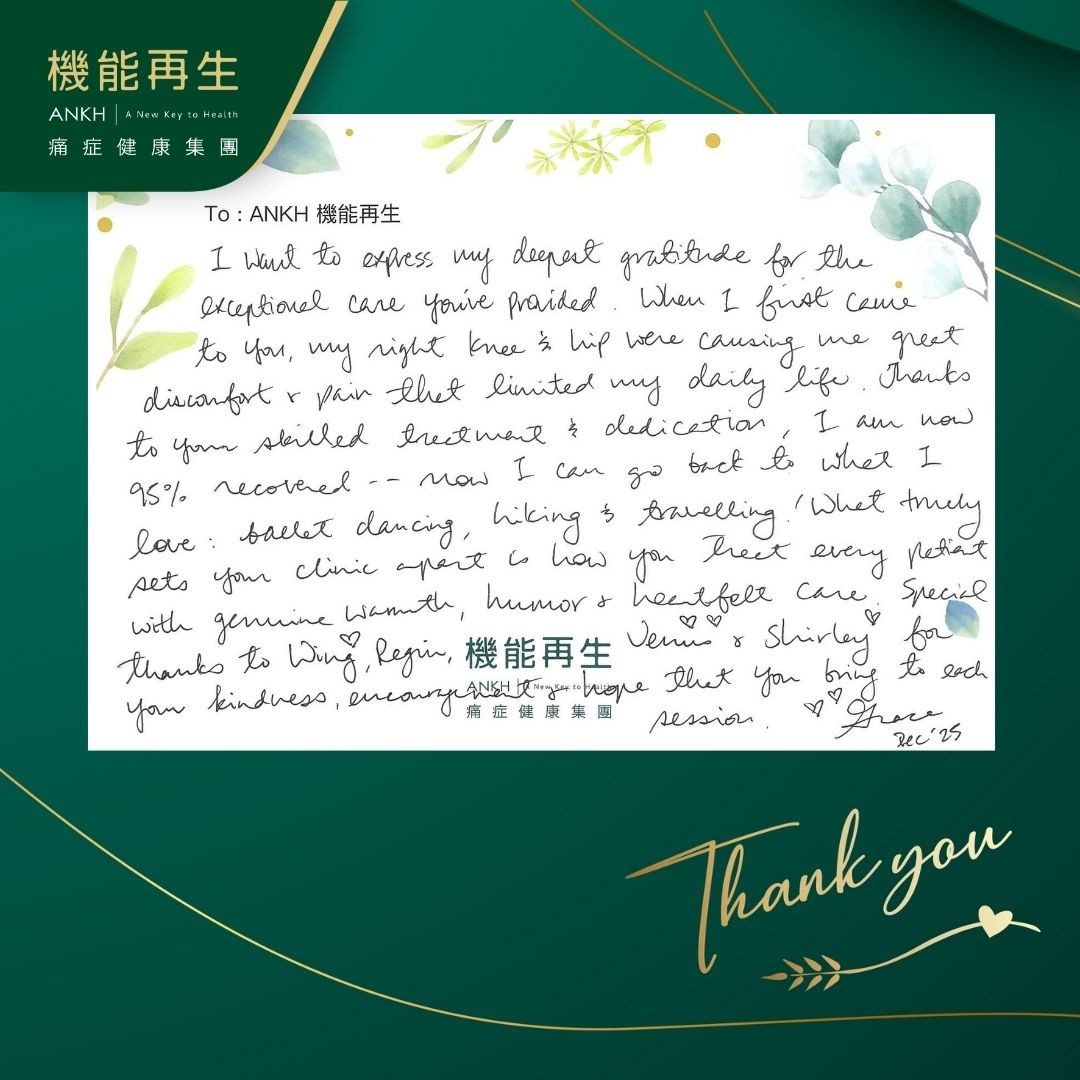 機能再生
ANKH | A New Key to Health
痛症健康集團
To : ANKH 機能再生
I want to express my deepest gratitude for the
exceptional care you've provided. When I first came
to you, my right knee & hip were causing me great
discomfort & pain that limited my daily life. Thanks
to your skilled treatment & dedication, I am now
95% recovered -- now I can go back to what I
love: ballet dancing, hiking & travelling! What truely
sets your clinic apart is how you treat every patient
with genuine warmth, humor & heartfelt care. Special
thanks to Wing, Regin, Venus & Shirley for
your kindness, encouragement & hope that you bring to each
session.
Grace
Dec '25
機能再生
ANKH | A New Key to Health
痛症健康集團
Thank you